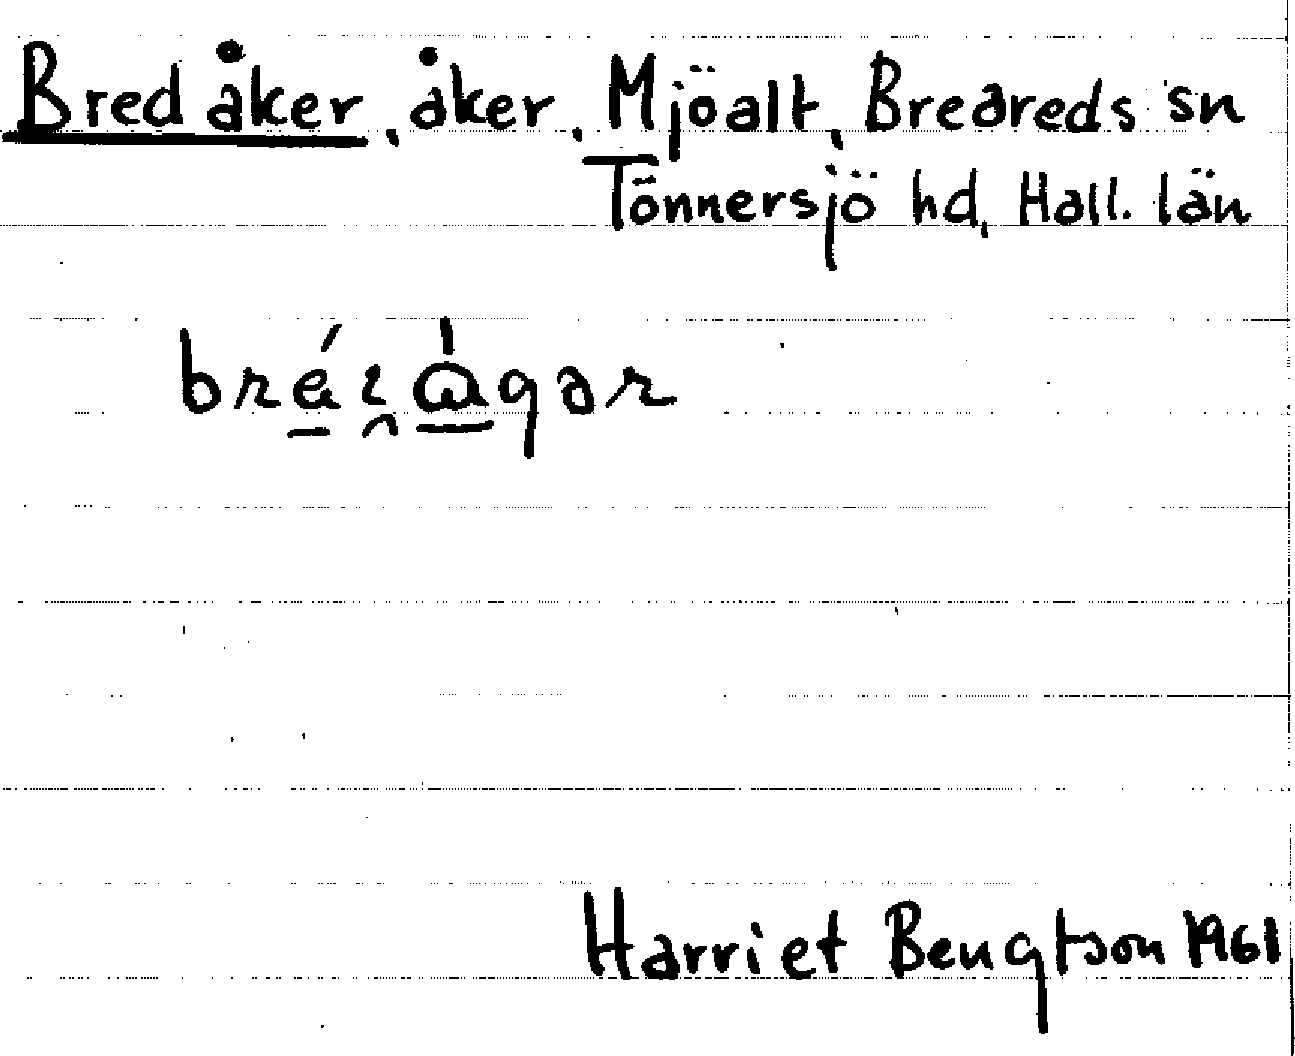 Bredåker, åker, Mjöalt, Breareds sn
Tönnersjö hd, Hall. län
Harriet Bengtson 1961